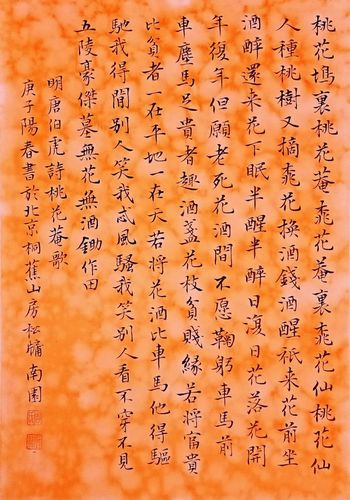 桃花塢裏桃花菴桃花菴裏桃花仙桃花仙
人種桃樹又摘桃花換酒錢酒醒祇来花前坐
酒醉還来花下眠半醒半醉日復日花落花開
年復年但願老死花酒間不愿鞠躬車馬前
車塵馬足貴者趣酒盞花枝貧賤緣若將富貴
比貧者一在平地一在天若將花酒比車馬他得驅
馳我得閒别人笑我忒風騷我笑别人看不穿不見
五陵豪傑墓無花無酒鋤作田
明唐伯虎詩桃花菴歌
庚子陽春書於北京桐蕉山房松牖南園